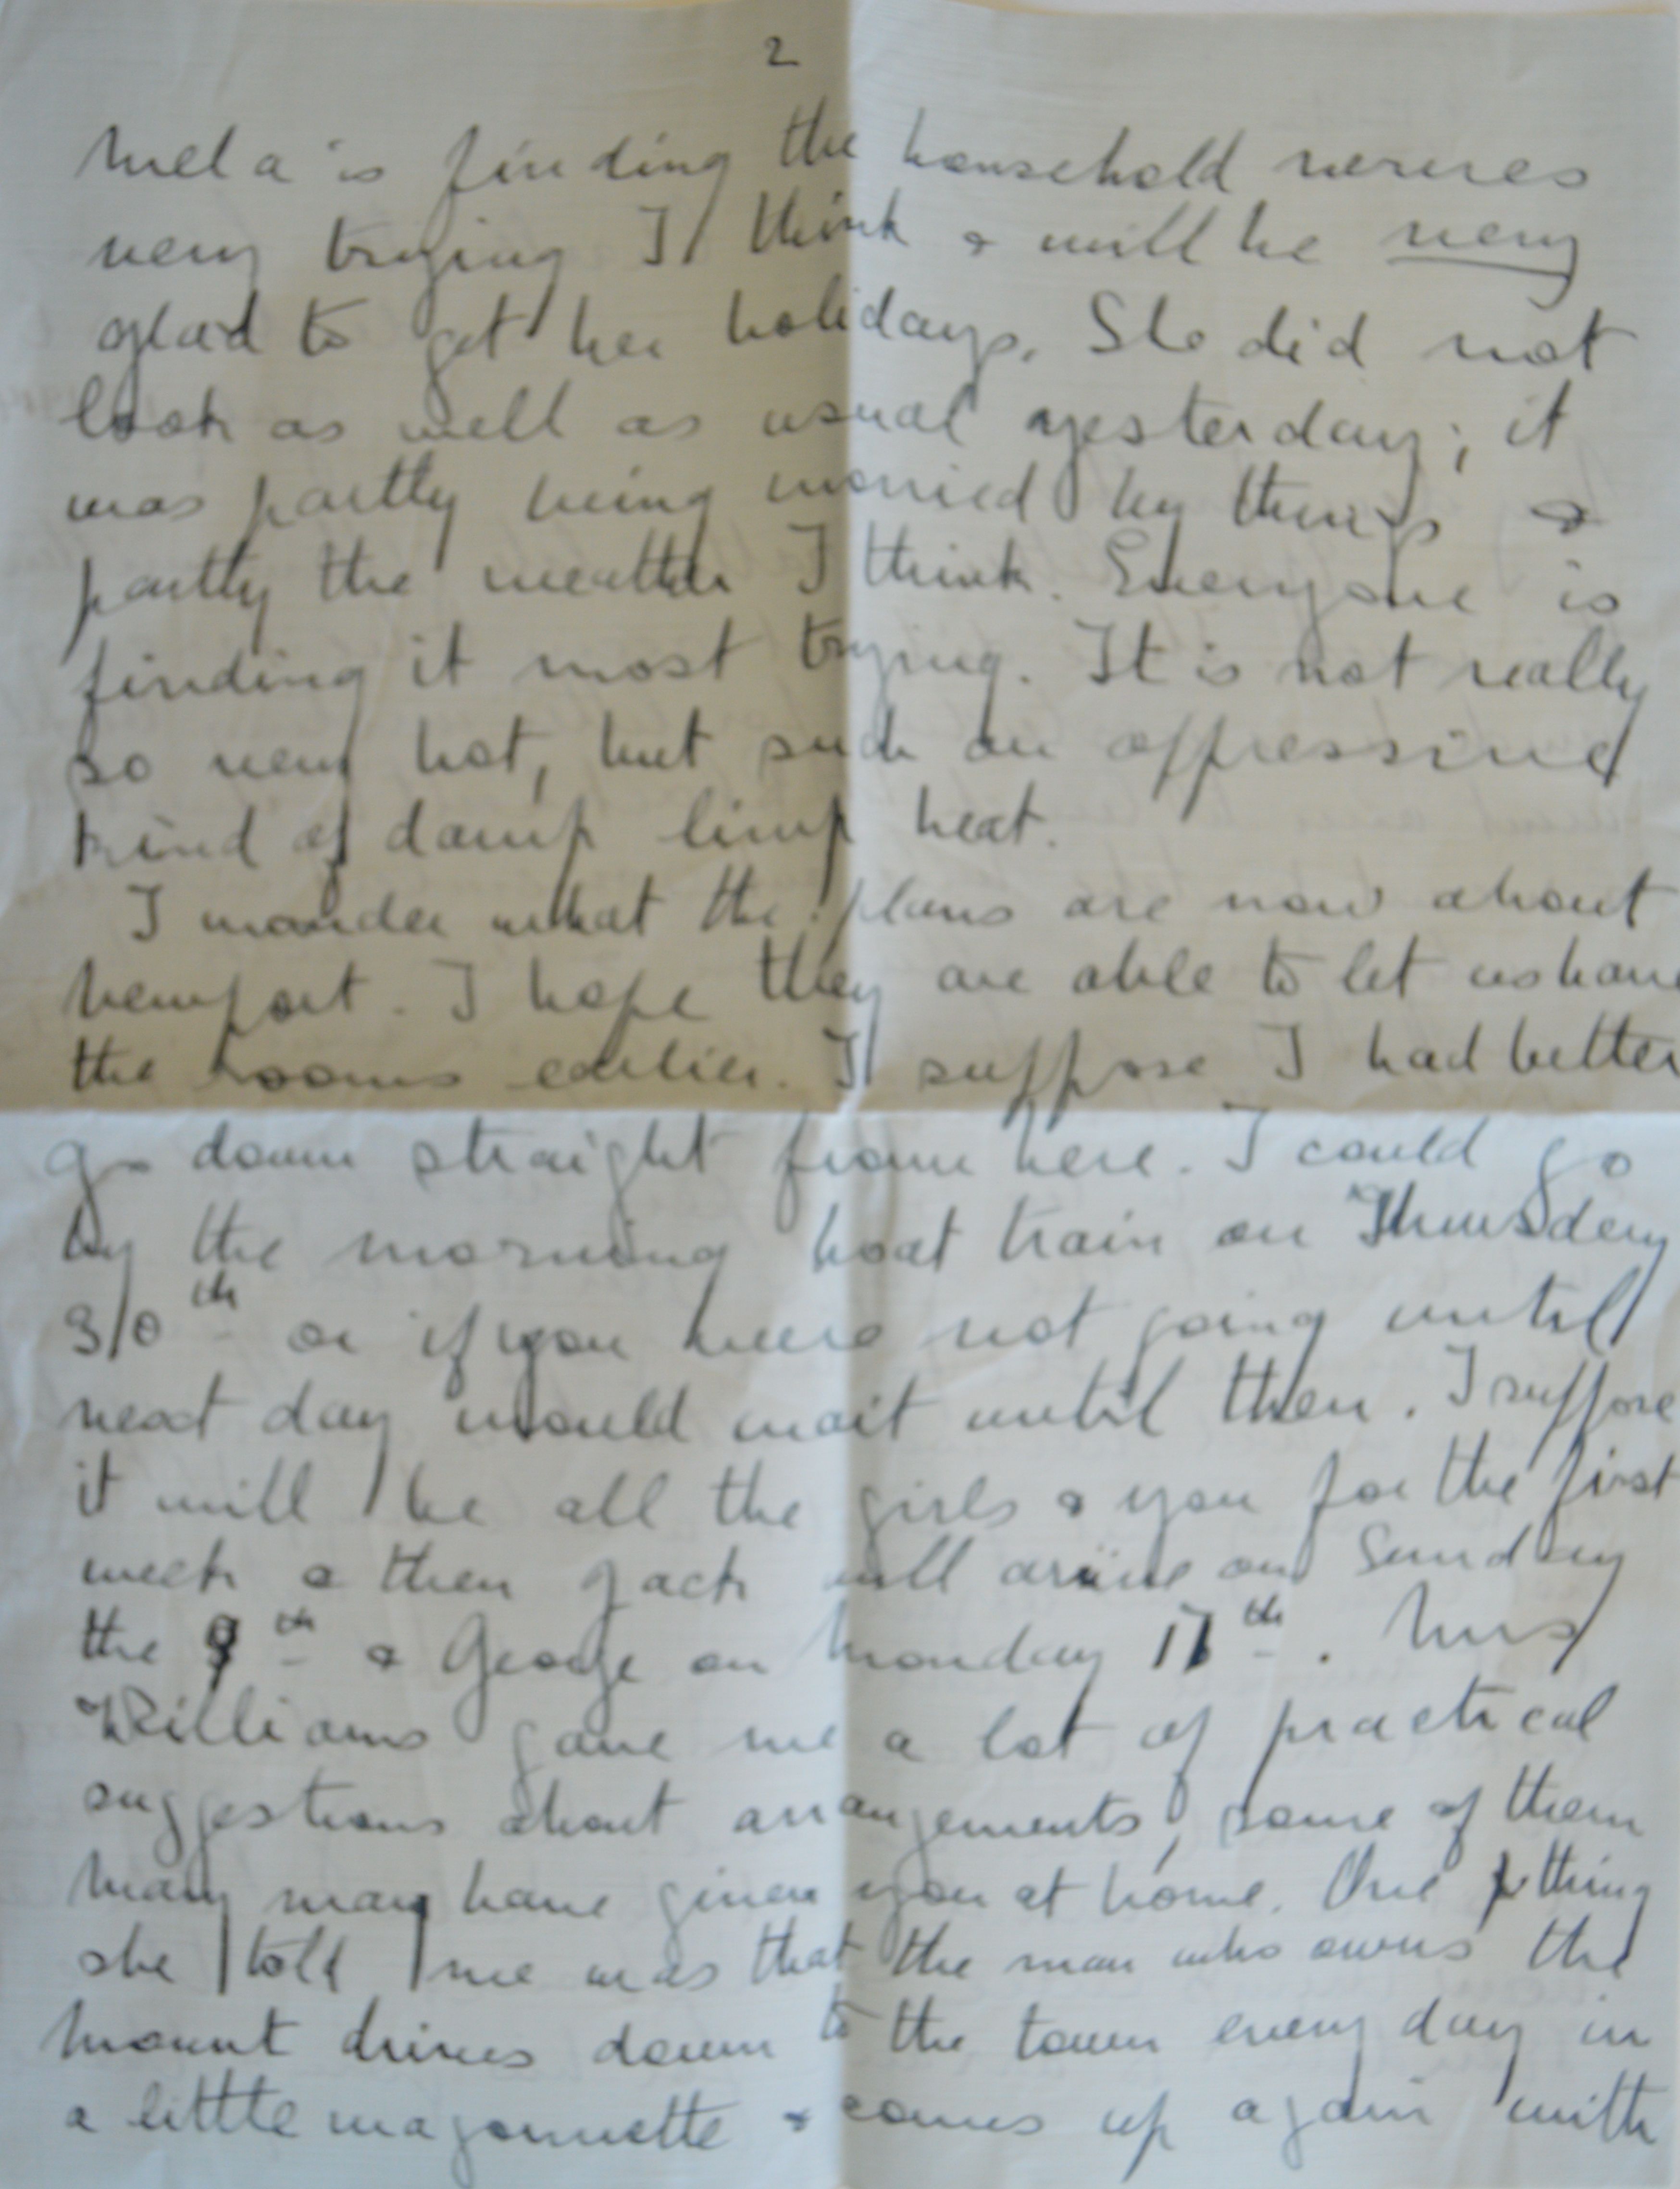 2
Mela is finding the household nerves
very trying I think & will be very
glad to get her holidays. She did not
look as well as usual yesterday; it
was partly being worried by things &
partly the weather I think. Everyone is
finding it most trying. It is not really
so very hot, but such an oppressive
kind of damp limp heat.
I wonder what the plans are now about
Newport. I hope they are able to let us have
the rooms earlier. I suppose I had better
go down straight from here. I could go
by the morning boat train on Thursday
30th or if you were not going until
next day would wait until then. I suppose
it will be all the girls & you for the first
week & then Jack will arrive on Sunday
the 9th & George on Monday 17th. Mrs
Williams gave me a lot of practical
suggestions about arrangements, some of them
Mary may have given you at home. One thing
she told me was that the man who owns the
Mount drives down to the town every day in
a little wagonnette & comes up again with